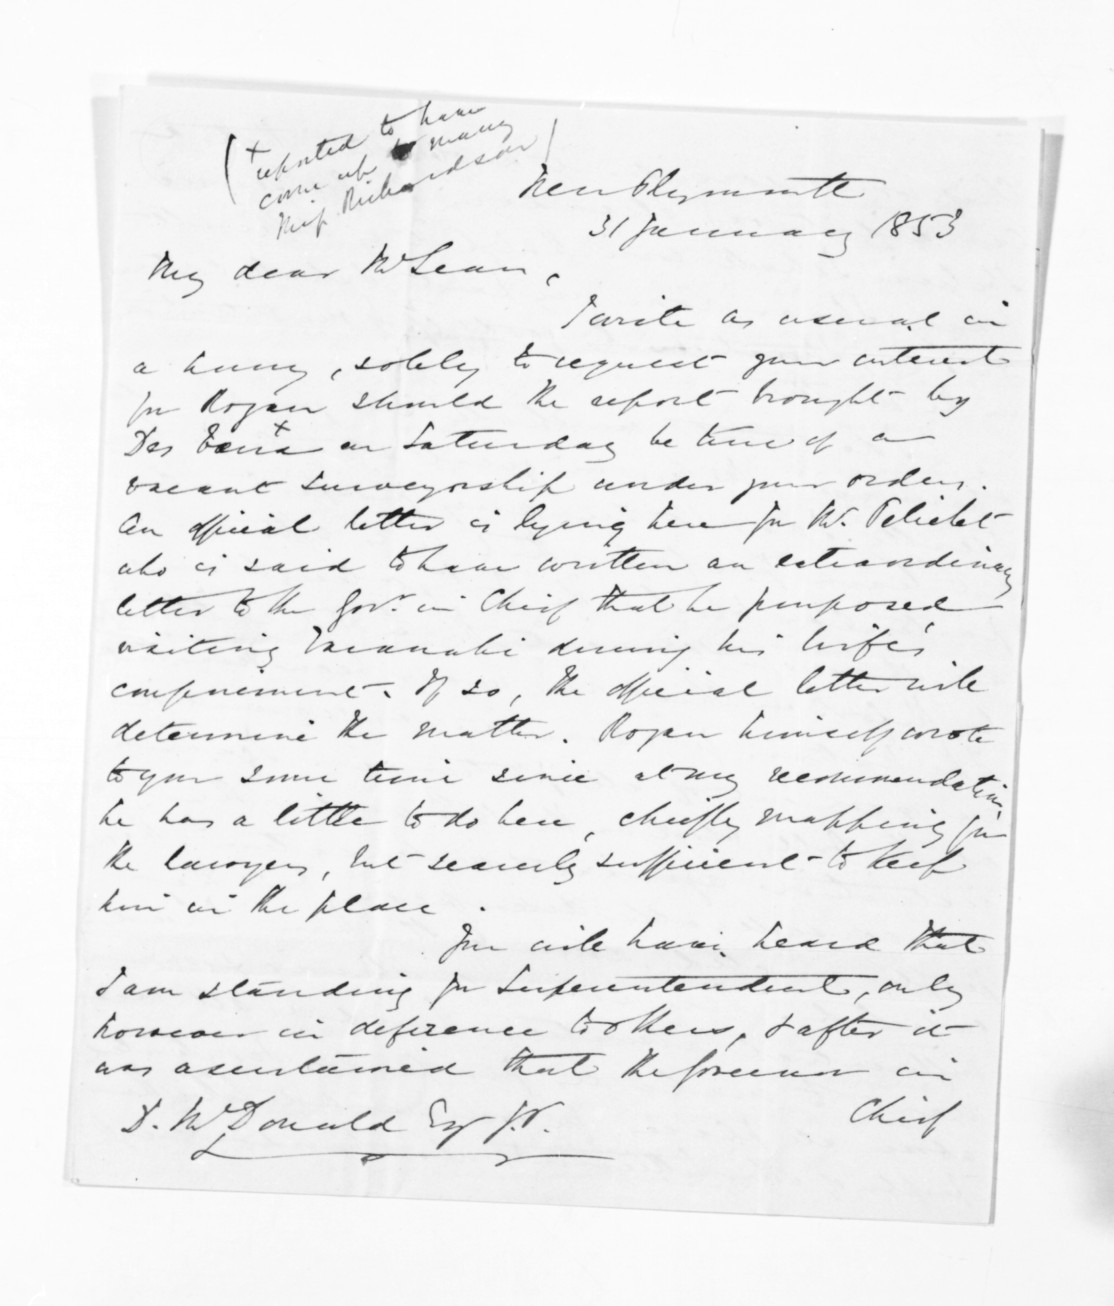 (+ reported to have
come up to marry
Miss Richardson)
New Plymouth
31 January 1853
My dear McLean,
I write as usual in
a hurry, solely to request your interest
for Rogan should the report brought by
Des Vœux + on Saturday be true of a
vacant surveyorship under your orders.
An official letter is lying here for Mr. Pelichet
who is said to have written an extraordinary
letter to the Govr. in Chief that he purposed
visiting Taranaki during his wife's
confinement. If so, the official letter will
determine the matter. Rogan himself wrote
to you some time since at my recommendation,
he has a little to do here, chiefly mapping for
the lawyers, but scarcely sufficient to keep
him in the place.
You will have heard that
I am standing for Superintendent, only
however in deference to others, & after it
was ascertained that the Governor in
Chief
D. McDonald Esq J.P.